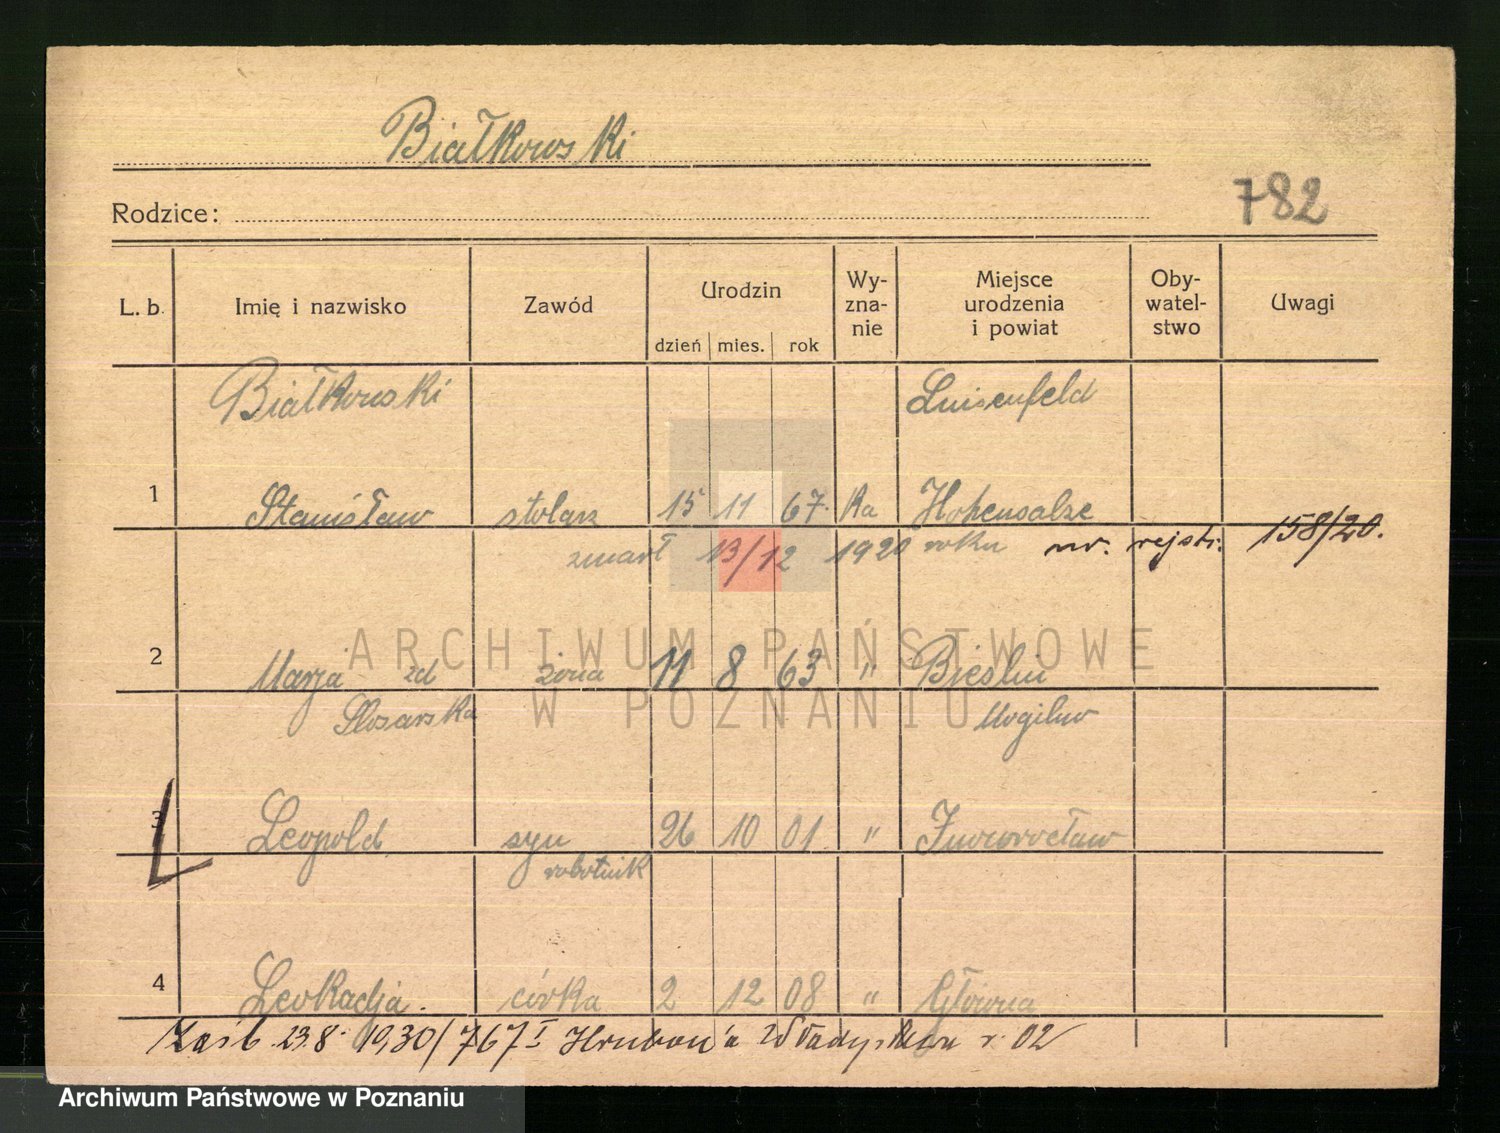 Białkowski
782
Rodzice:
L. b. Imię i nazwisko Zawód Urodzin dzień mies. rok Wy-zna-nie Miejsce urodzenia i powiat Oby-watel-stwo Uwagi
Białkowski Luisenfeld
1 Stanisław stolarz 15 11 67. ka Hohensalze
zmarł 13/12 1920 roku nr. rejstr. 158/20.
ARCHIWUM PAŃSTWOWE
2 Marja zd żona 11 8 63 " Bieslin
W POZNANIU
Slosarska Mogilno
3 Leopold syn 26 10 01. " Inowrocław
robotnik
4 Leokadja. córka 2 12 08 " Główna
Zaśb. 23.8. 1930/767 I Hruboń'a Władysława r. 02
Archiwum Państwowe w Poznaniu